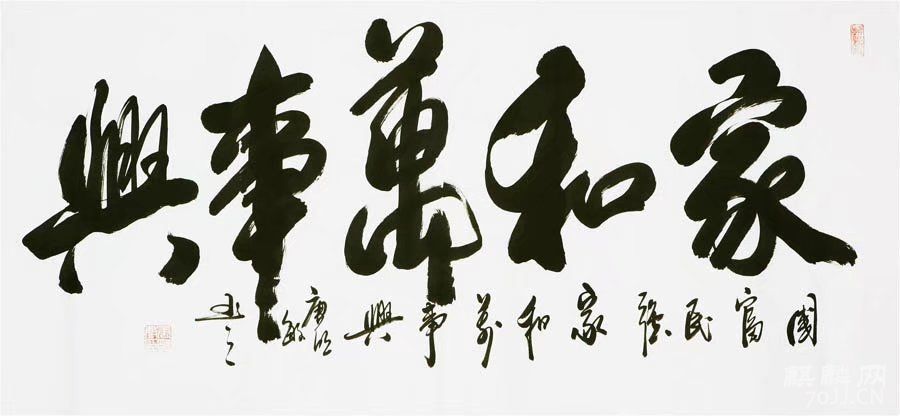 家和萬事興
國富民強家和萬事興
麒麟网
70JJ.CN